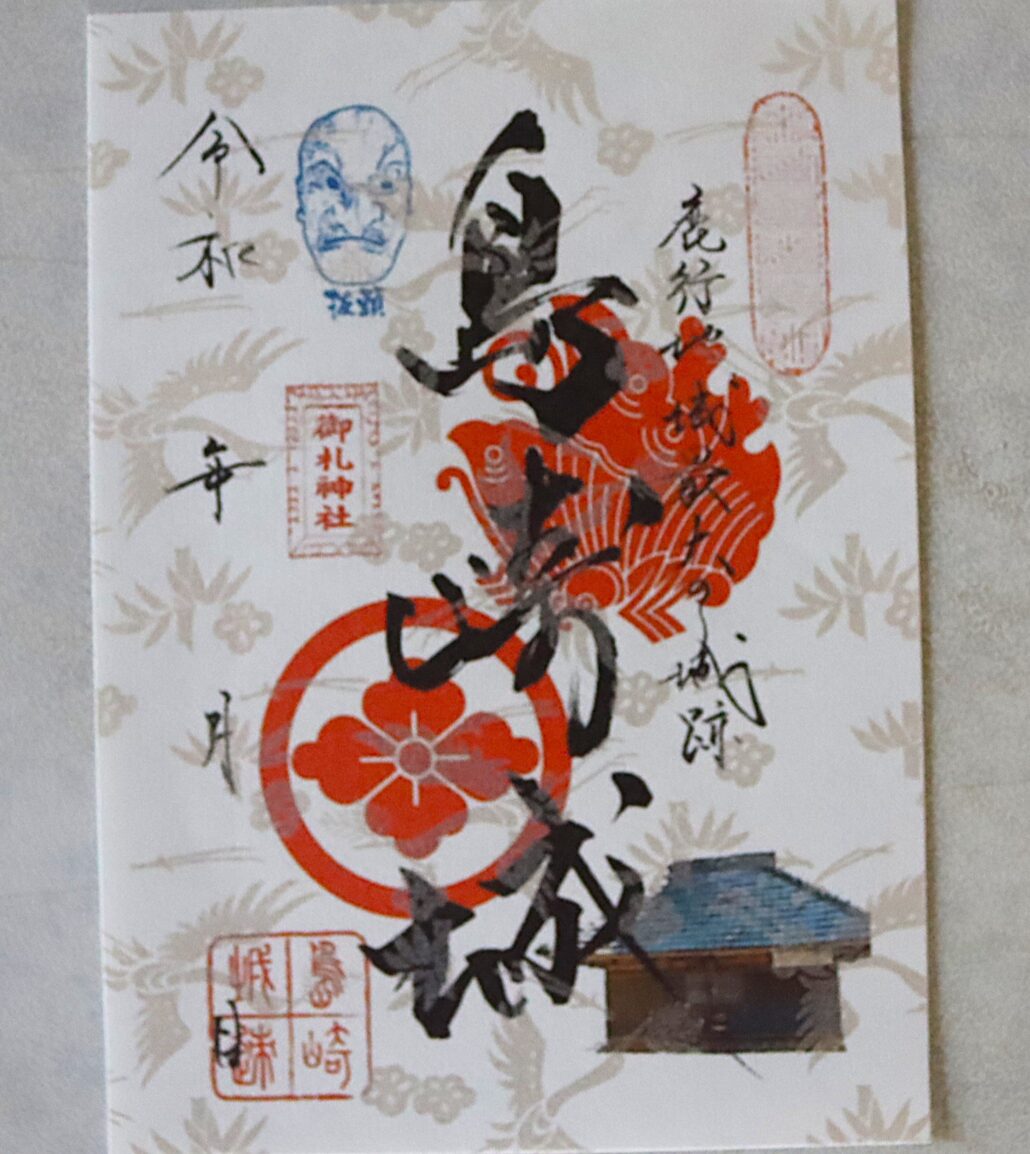 鹿行地域最大の城跡
島崎城
御札神社
令和 年 月 日
島崎
城